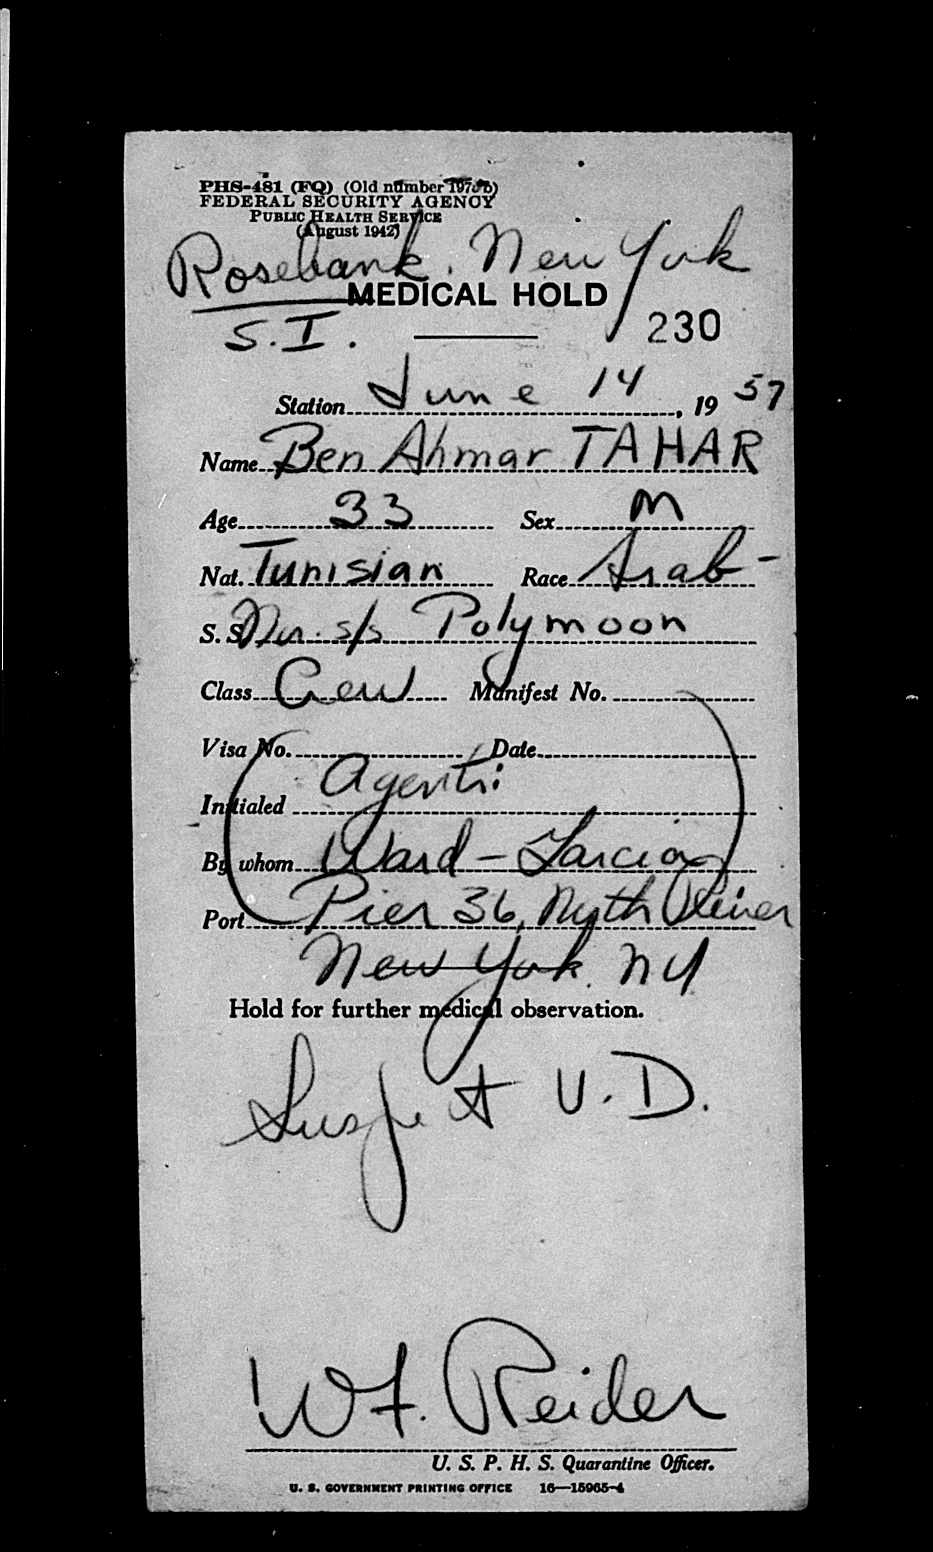 PHS-481 (FQ) (Old number 1978b)
FEDERAL SECURITY AGENCY
PUBLIC HEALTH SERVICE
(August 1942)
Rosebank, New York
MEDICAL HOLD
S.I.
230
Station June 14, 19 57
Name Ben Ahmar TAHAR
Age 33 Sex M
Nat. Tunisian Race Arab-
S. S. Nor. s/s Polymoon
Class Crew Manifest No.
Visa No. Date
Agents:
Initialed
By whom Ward-Garcia
Port Pier 36, North River
New York. NY
Hold for further medical observation.
Suspect V.D.
W.F. Reider
U. S. P. H. S. Quarantine Officer.
U. S. GOVERNMENT PRINTING OFFICE 16—15965-4